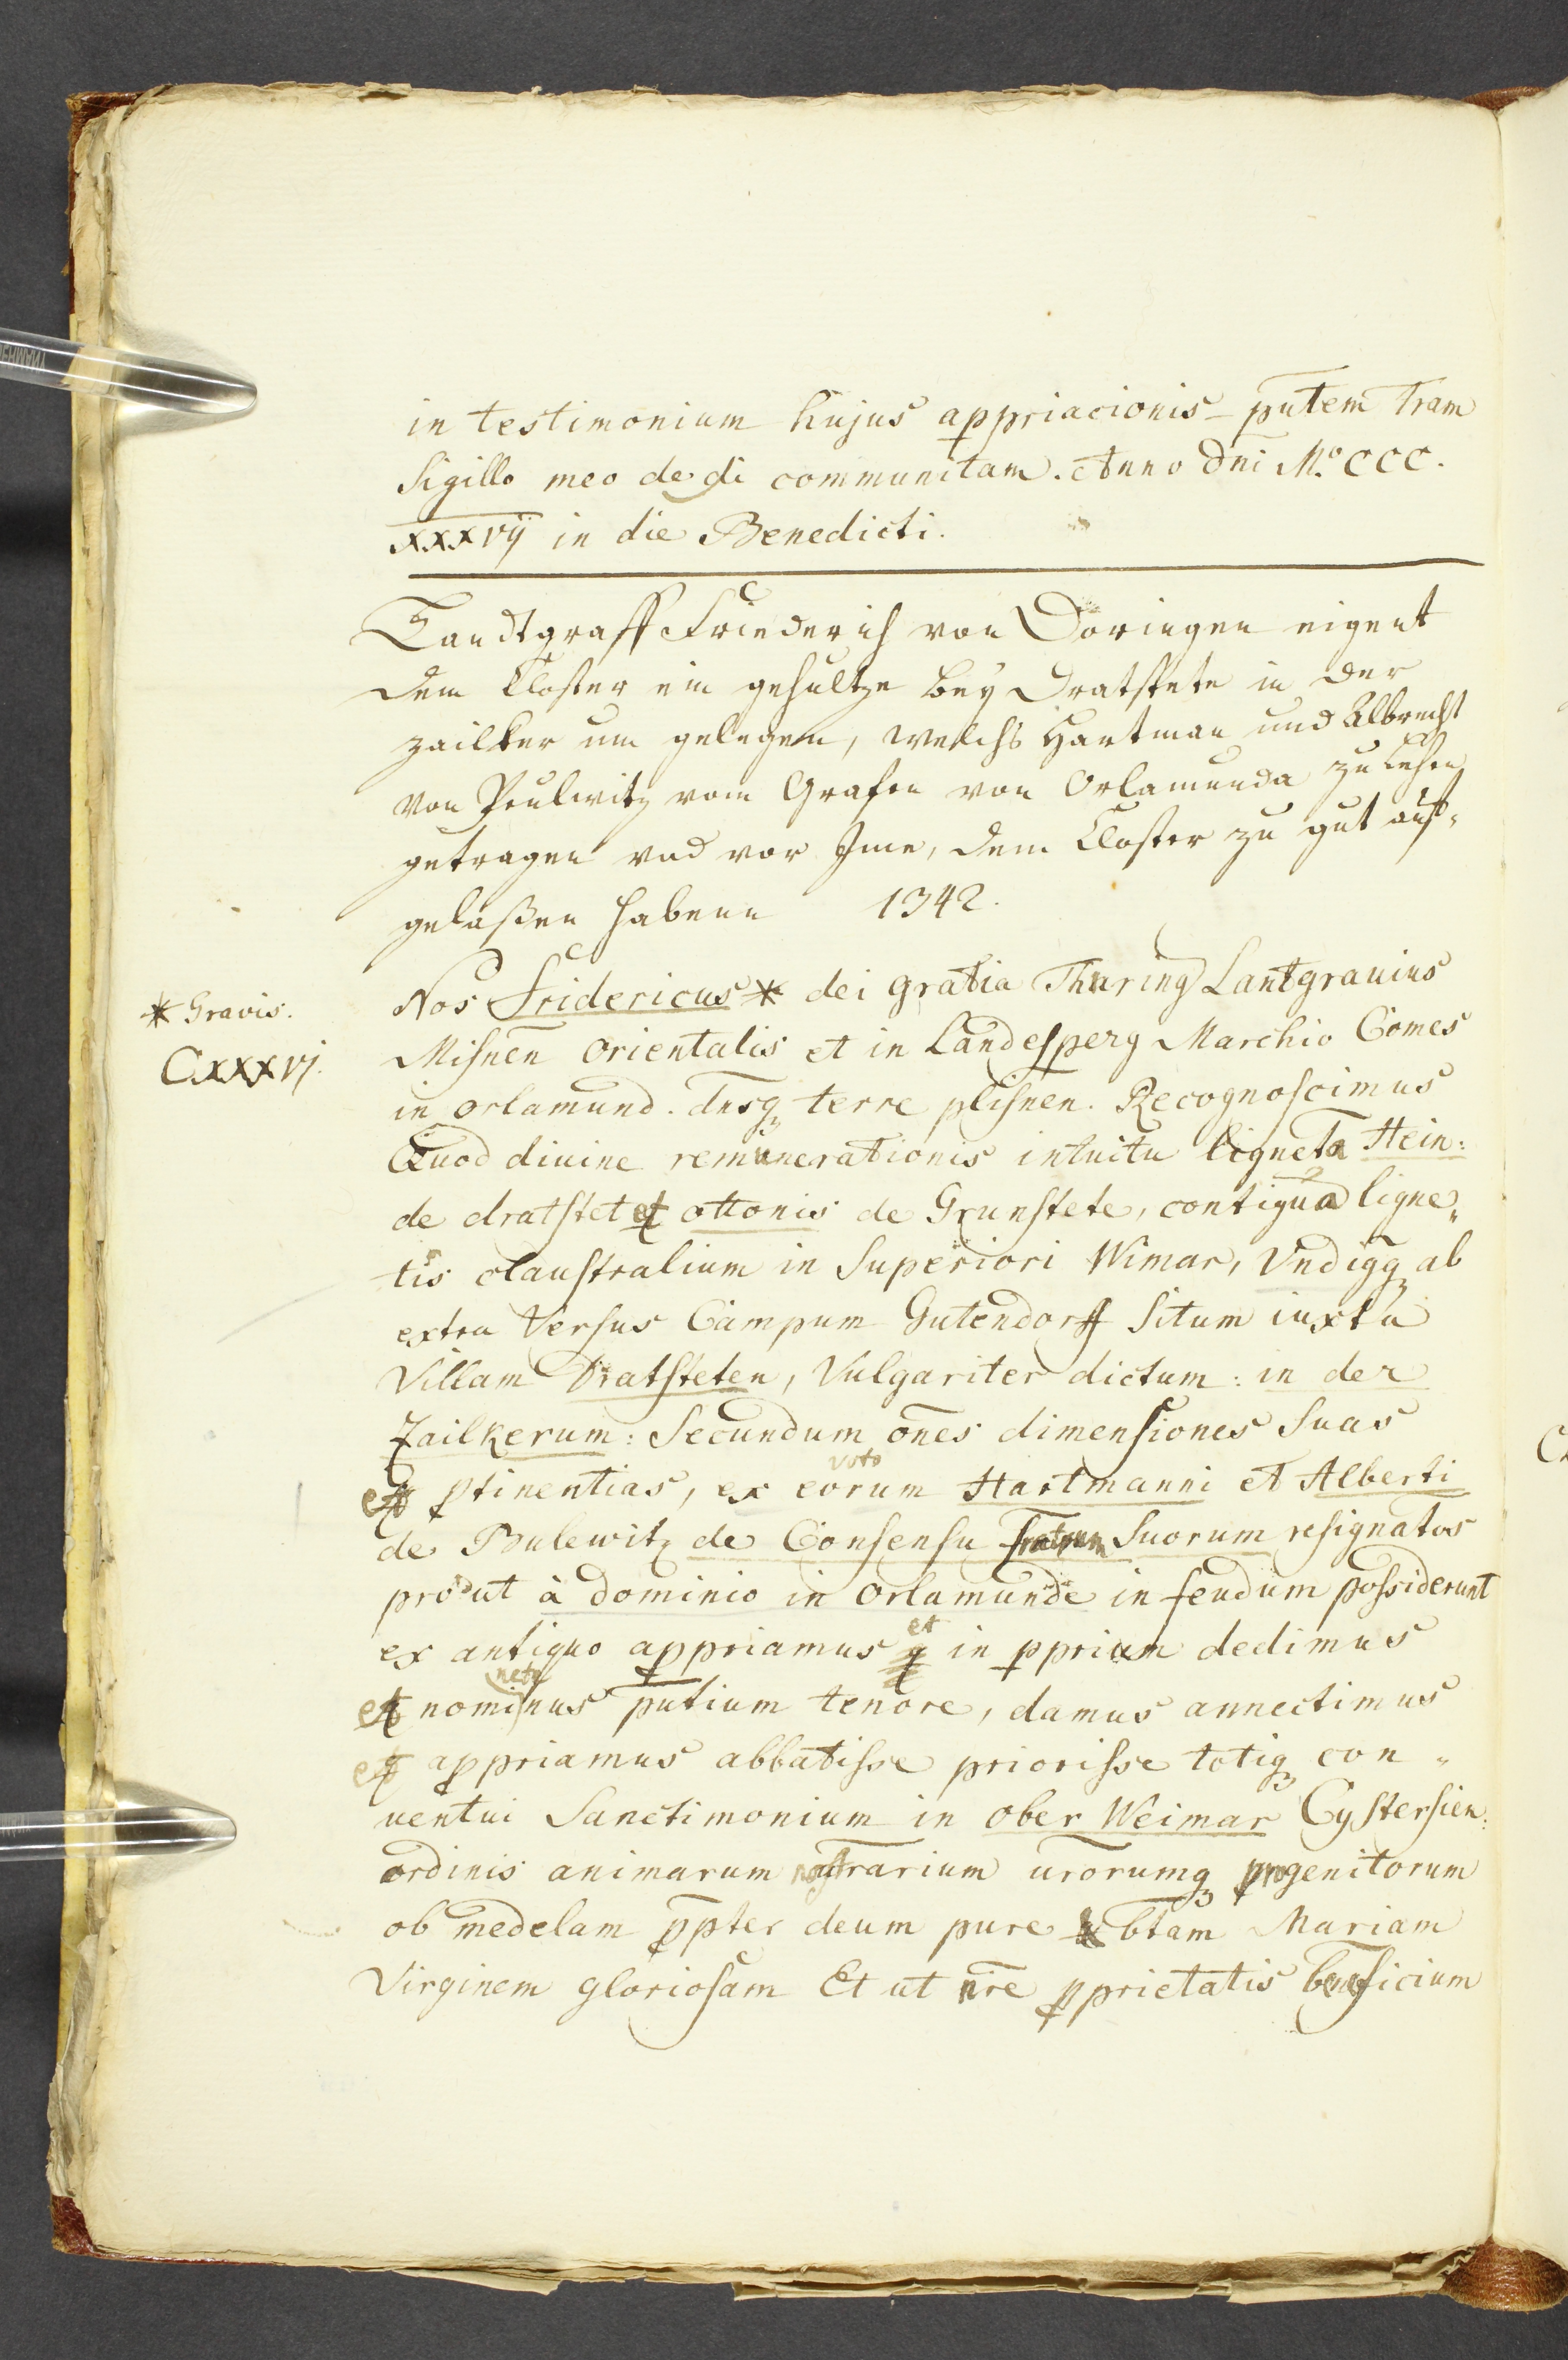 in testimonium hujus appriacionis putem tram
Sigillo meo dedi communitam. Anno dni M.º CCC.
xxxvij in die Benedicti.
Landtgraff Friederich von Döringen eigent
dem Closter ein gehultze bey Dratstete in der
zailker um gelegenn, welchs Hartman und Albrecht
von Peulwitz vom Grafen von Orlamunda zu Lehen
getragen vnd vor Ime, dem Closter zu gut auf-
gelaßen habenn 1342.
Nos Fridericus * dei gratia Thuring Lantgrauius
* Gravis.
CXXXVj.
Misnen Orientalis et in Landesperg Marchio Comes
in Orlamund. dnsq; terre plisnen. Recognoscimus
Quod diuine remunerationis intuitu ligneta Hein:
de dratstet et ottonis de Grunstete, contigua ligne„
tis claustralium in Superiori Wimar, Vndiqq ab
extra Versus Campum Gutendorff Situm iuxta
Villam Dratsteten, Vulgariter dictum: in der
Zailkerum: Secundum ōnes dimensiones Suas
et ptinentias, ex eorum voto Hartmanni et Alberti
de Bulewitz de Consensu fratrum Suorum resignatos
prout à dominio in Orlamunde in feudum possiderunt
ex antiquo appriamus et in pprium dedimus
et nominus putium tenore, damus annectimus
et appriamus abbatisse priorisse totiq; con„
uentui Sanctimonium in Ober Weimar Cystersien:
ordinis animarum nostrarium urorumq; progenitorum
ob medelam ppter deum pure btam Mariam
Virginem gloriosam Et ut nre pprietatis beneficium